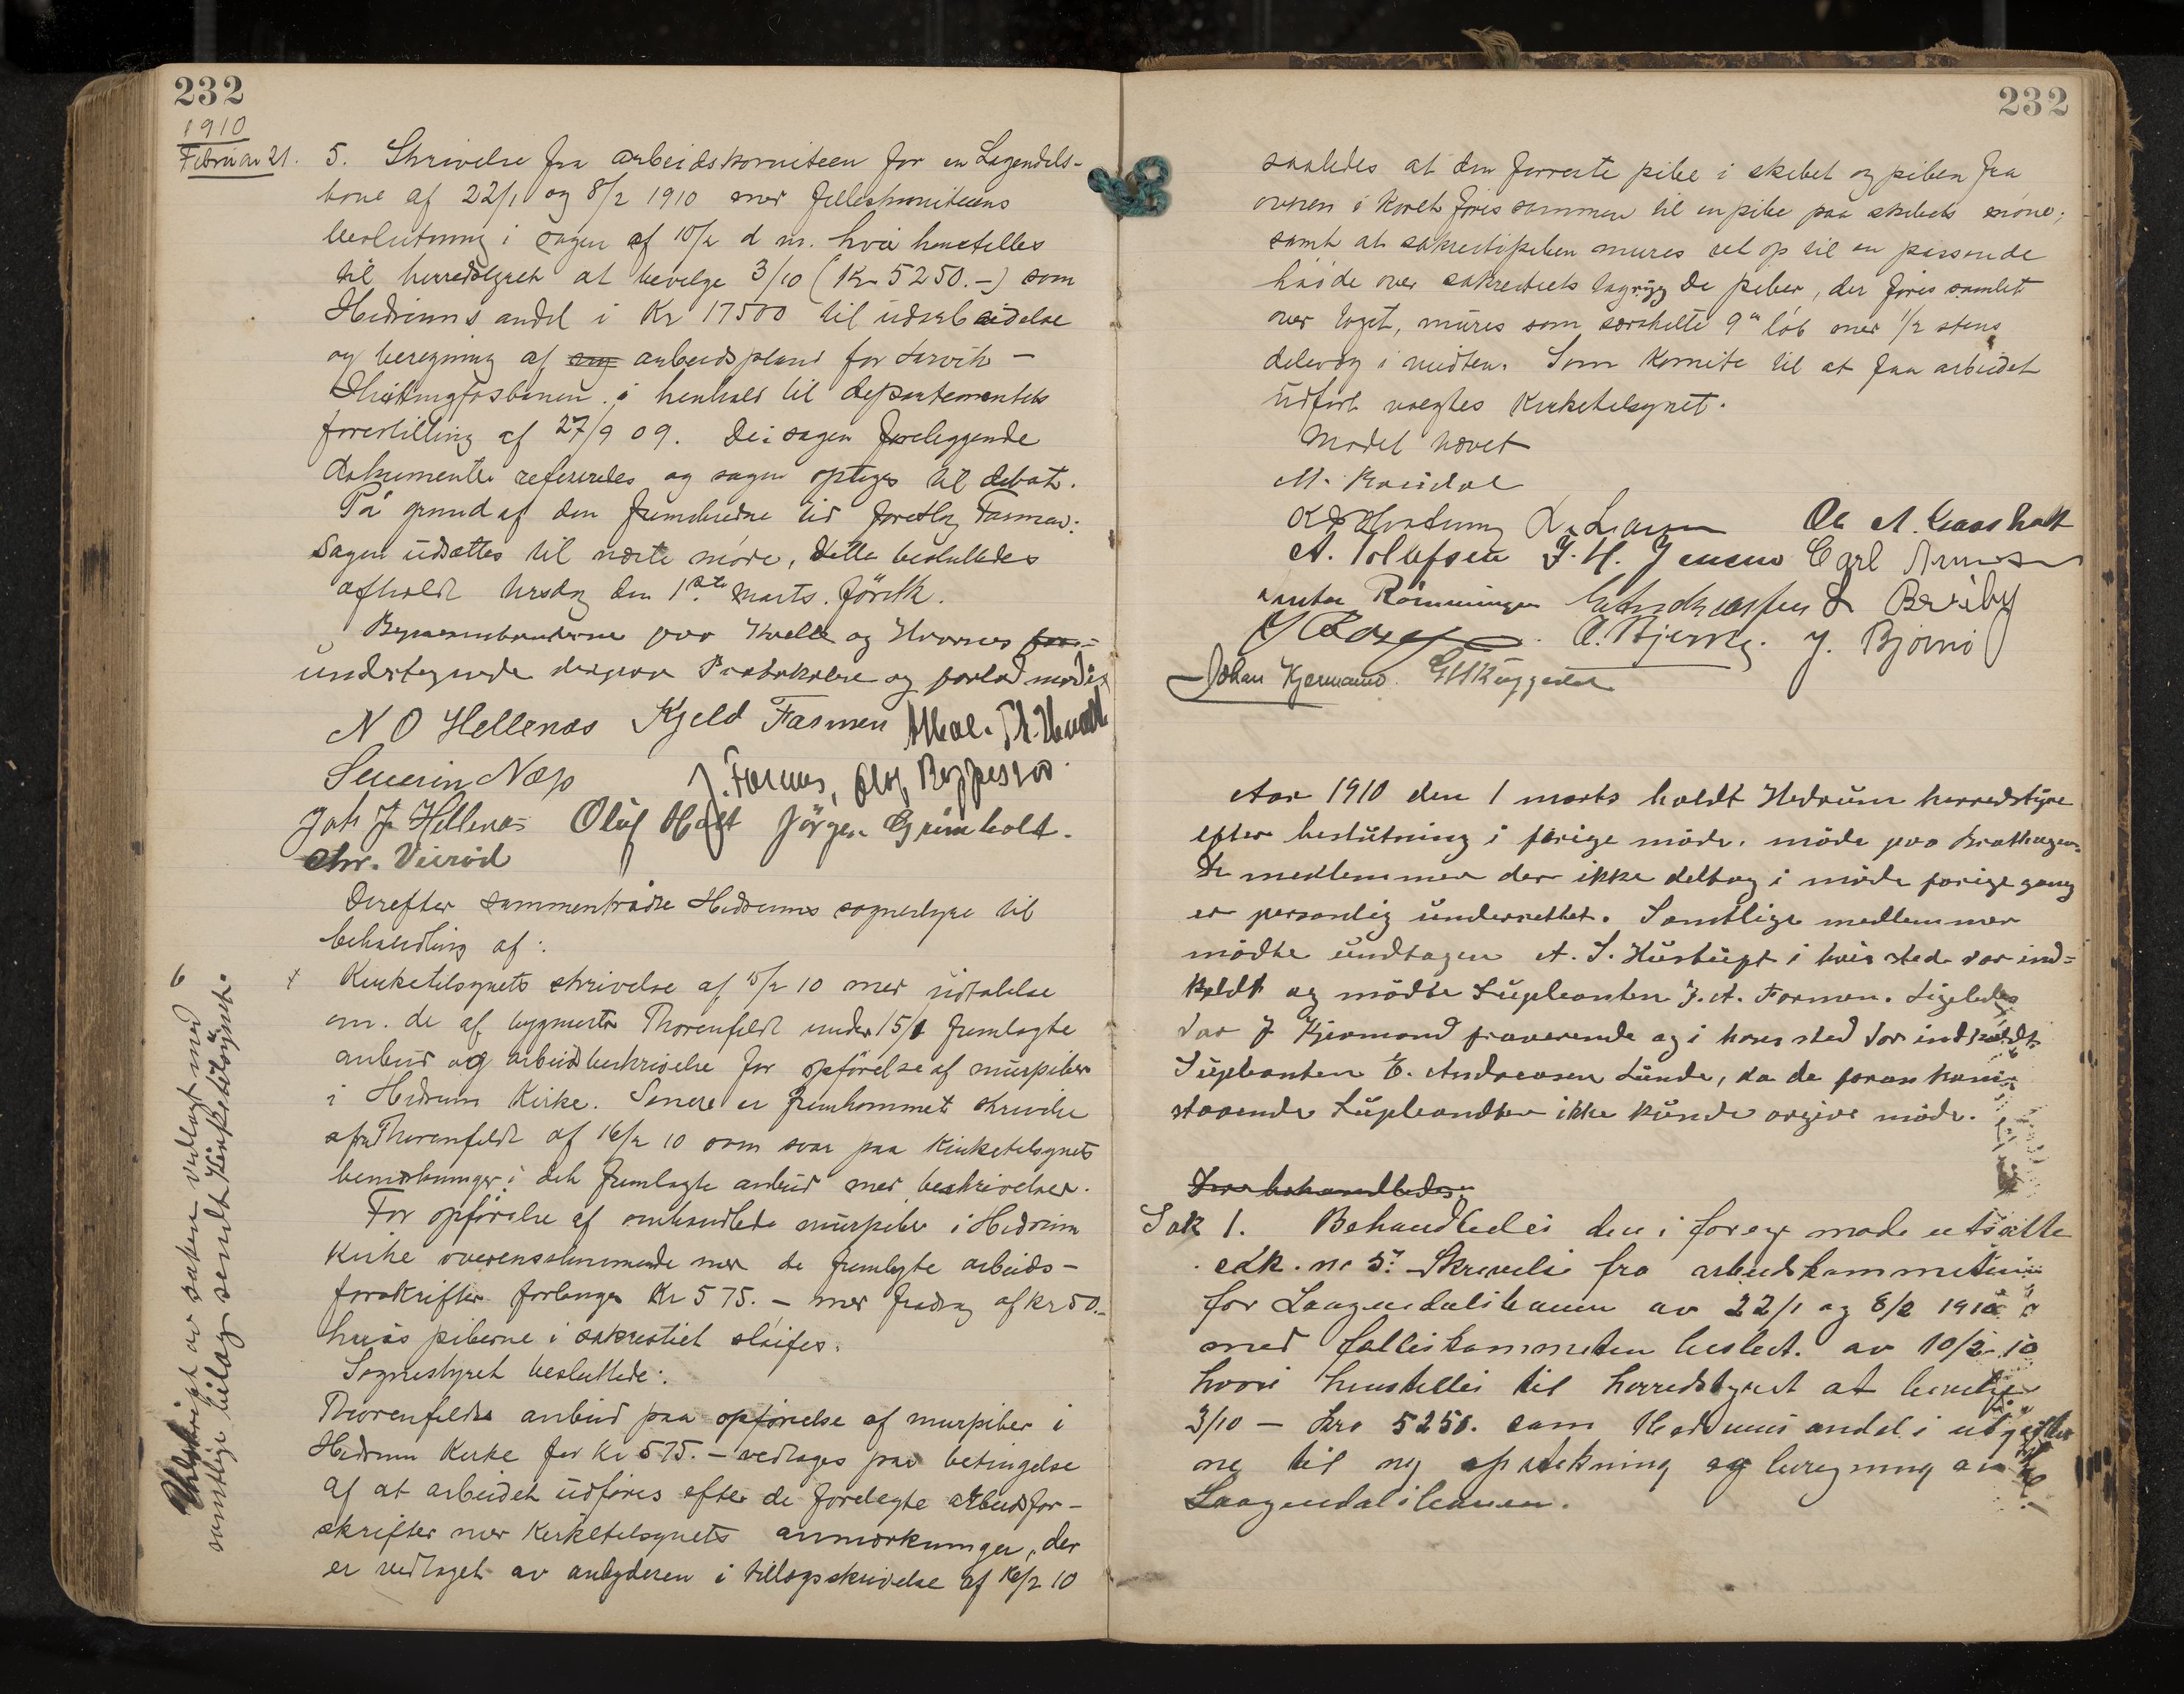 232
1910
Februar 21.
5. Skrivelse fra arbeidskomiteen for en Lagendals-
bane af 22/1 og 8/2 1910 med felleskomiteens
beslutning i sagen af 10/2 d m. hvori henstilles
til herredstyret at bevilge 3/10 (Kr 5250.-) som
Hedrums andel i Kr 17500 til udarbeidelse
og beregning af arbeidsplaner for Larvik -
i henhold til departementets
forestilling af 27/9 09. De i sagen foreliggende
dokumenter refereredes og sagen optoges til debat.
På grund af den fremskredne tid foreslog Farmen:
Sagen udsættes til næste møde, dette besluttedes
afholdt tirsdag den 1ste marts førstk.
paa Kvelle og Hvarnes
undertegnede derpaa Protokolen og forlod mødet
N O Hellenes Kjeld Farmen
Severin Næss J. Farmen,
Joh J. Hellenes Oluf Holt Jörgen Grimholt.
Chr. Veiröd
Derefter sammentraadte Hedrums sognestyre til
behandling af:
6
Kirketilsynets skrivelse af 15/2 10 med udtalelse
om de af bygmester Thorenfeldt under 15/1 fremlagte
anbud og arbeidsbeskrivelse for opförelse af murpiber
i Hedrum Kirke. Senere er fremkommet skrivelse
fra Thorenfeldt af 16/2 10 som svar paa Kirketilsynets
bemerkninger i det fremlagte anbud med beskrivelser.
For opförelse af omhandlede murpiber i Hedrum
Kirke overensstemmende med de fremlagte arbeids-
forskrifter forlanges Kr 575.- med fradrag af kr 50.-
hvis piberne i sakrestiet slöifes.
Sognestyret besluttede:
Thorenfeldts anbud paa opförelse af murpiber i
Hedrum Kirke for Kr 575.- vedtages paa betingelse
af at arbeidet udföres efter de forelagte arbeidsfor-
skrifter med Kirketilsynets anmærkninger, der
er vedtaget av anbyderen i tillægsskrivelse af 16/2 10
Utskrift av saken vedlagt med
samtlige bilag sendt Kirketilsynet.
232
saaledes at den forreste pibe i skibet og piben fra
ovnen i koret föres sammen til en pibe paa skibets möne;
samt at sakrestipiben mures vel op til en passende
höide over sakrestiets tagryg De piber, der föres samlet
over taget, mures som særskilte 9" löb med 1/2 stens
delevæg i midten. Som Komite til at faa arbeidet
udfört valgtes Kirketilsynet.
Mödet hævet
M.
L. Larsen
A. Olufsen J. H. Jensen Carl
Anton Rönningen
A. Bjerke. J. Björnö
Johan Kjermand.
Aar 1910 den 1 marts holdt Hedrum herredstyre
efter beslutning i forige möde, möde paa Brathagen.
De medlemmer der ikke deltog i möde forige gang
er personlig underrettet. Samtlige medlemmer
mödte undtagen A. S. i hvis sted var ind=
kaldt og mödte Supleanten J. A. Farmen. Ligeledes
var J Kjermand fraværende og i hans sted var indkaldt
Supleanten E. Andreasen Lunde, da de foran ham
staaende Supleandter ikke kunde avgive möde.
Der behandledes:
Sak 1. Behandledes den i forrige möde utsatte
sak nr 5: Skrivelse fra arbeidskommiteen
for Laagendalsbanen av 22/1 og 8/2 1910
med felleskommiteens beslut. av 10/2 10
hvori henstilles til herredstyret at bevilge
3/10 - kro 5250. som Hedrums andel i utgifter
ne til ny opstikning og beregning av
Laagendalsbanen.